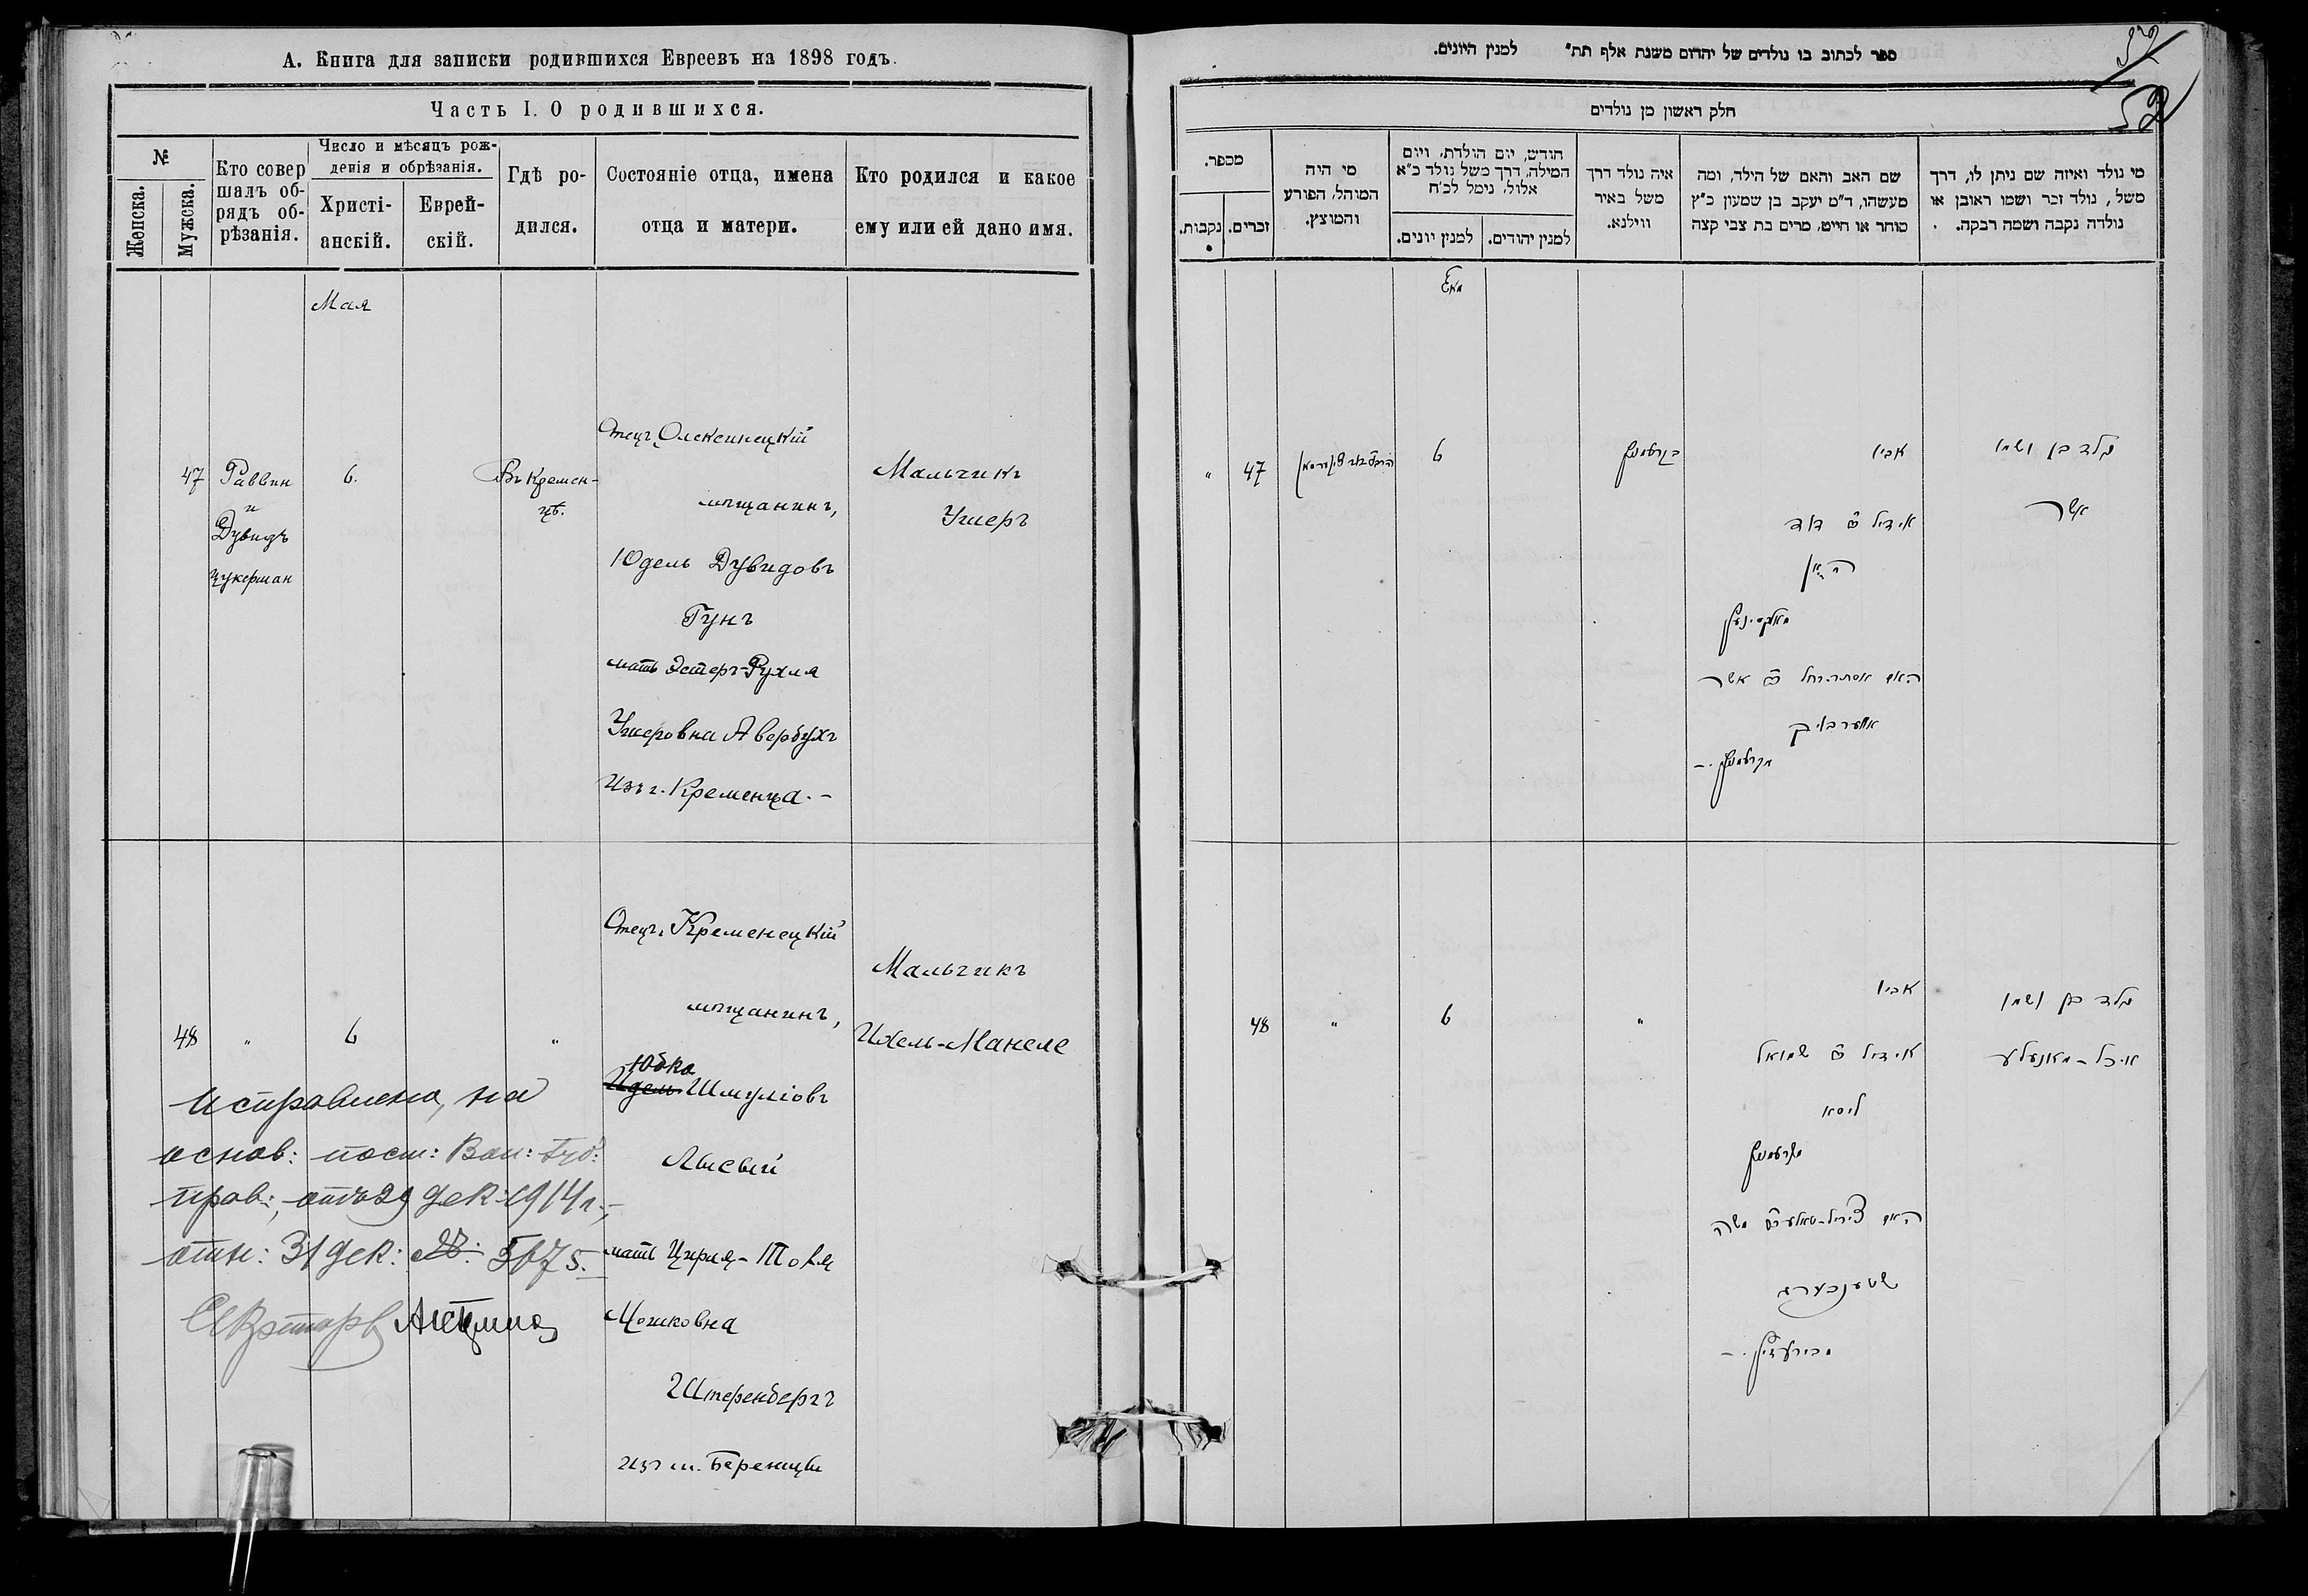 А. Книга для записки родившихся Евреевъ на 1898 годъ.
Часть I. О родившихся.
№
Женска.
Мужска.
Кто совер
шалъ об-
рядъ об-
рѣзанія.
Число и мѣсяцъ рож-
денія и обрѣзанія.
Христі-
анскій.
Еврей-
скій.
Гдѣ ро-
дился.
Состояніе отца, имена
отца и матери.
Кто родился и какое
ему или ей дано имя.
Мая
47
Раввин
и
Дувидъ
Цукерман
6.
Въ Кремен-
цѣ.
Отецъ, Олексинецкій
мѣщанинъ,
Юдель Дувидовъ
Гунъ
мать Эстеръ-Рухля
Ушеровна Авербухъ
Изъ г. Кременца.-
Мальчикъ
Ушеръ
48
"
6
"
Отецъ, Кременецкій
мѣщанинъ,
Юдко
Идель Шмуліовъ
Лысый
мать Цирля-Товя
Мошковна
Штеренбергъ
изъ м. Бережцы
Мальчикъ
Ихель-Манеле
Исправлено, на
основ: пост: Вол: Губ:
прав:, отъ 29 дек: 1914 г.,
отн: 31 дек: №: 5075.
Секретарь
ספר לכתוב בו נולדים של יהדום משנת אלף תת" למנין היונים.
52
חלק ראשון מן נולדים
מספר.
נקבות.
זכרים.
מי היה
המוהל, הפורע
והמוצץ.
חודש, יום הולדת, ויום
המילה, דרך משל נולד כ"א
אלול, נימל לכ"ח
למנין יונים.
למנין יהודים.
איה נולד דרך
משל באיר
ווילנא.
שם האב והאם של הילד, ומה
מעשהו, ד"מ יעקב בן שמעון כ"ץ
סוחר או חייט, מרים בת צבי קצה
מי נולד ואיזה שם ניתן לו, דרך
משל, נולד זכר ושמו ראובן או
נולדה נקבה ושמה רבקה.
מאי
"
47
6
קרעמניץ
אביו
אידיל ב"ר דוד
האן
האם אסתר רחל ב"ר אשר
אווערבוך
מקרעמניץ .-
נולד בן ושמו
אשר
48
"
6
"
אביו
אידיל ב"ר שמואל
ליסא
מקרעמניץ
האם צירל-טאלע ב"ר משה
שטענבערג
נולד בן ושמו
איכל-מאנעלע